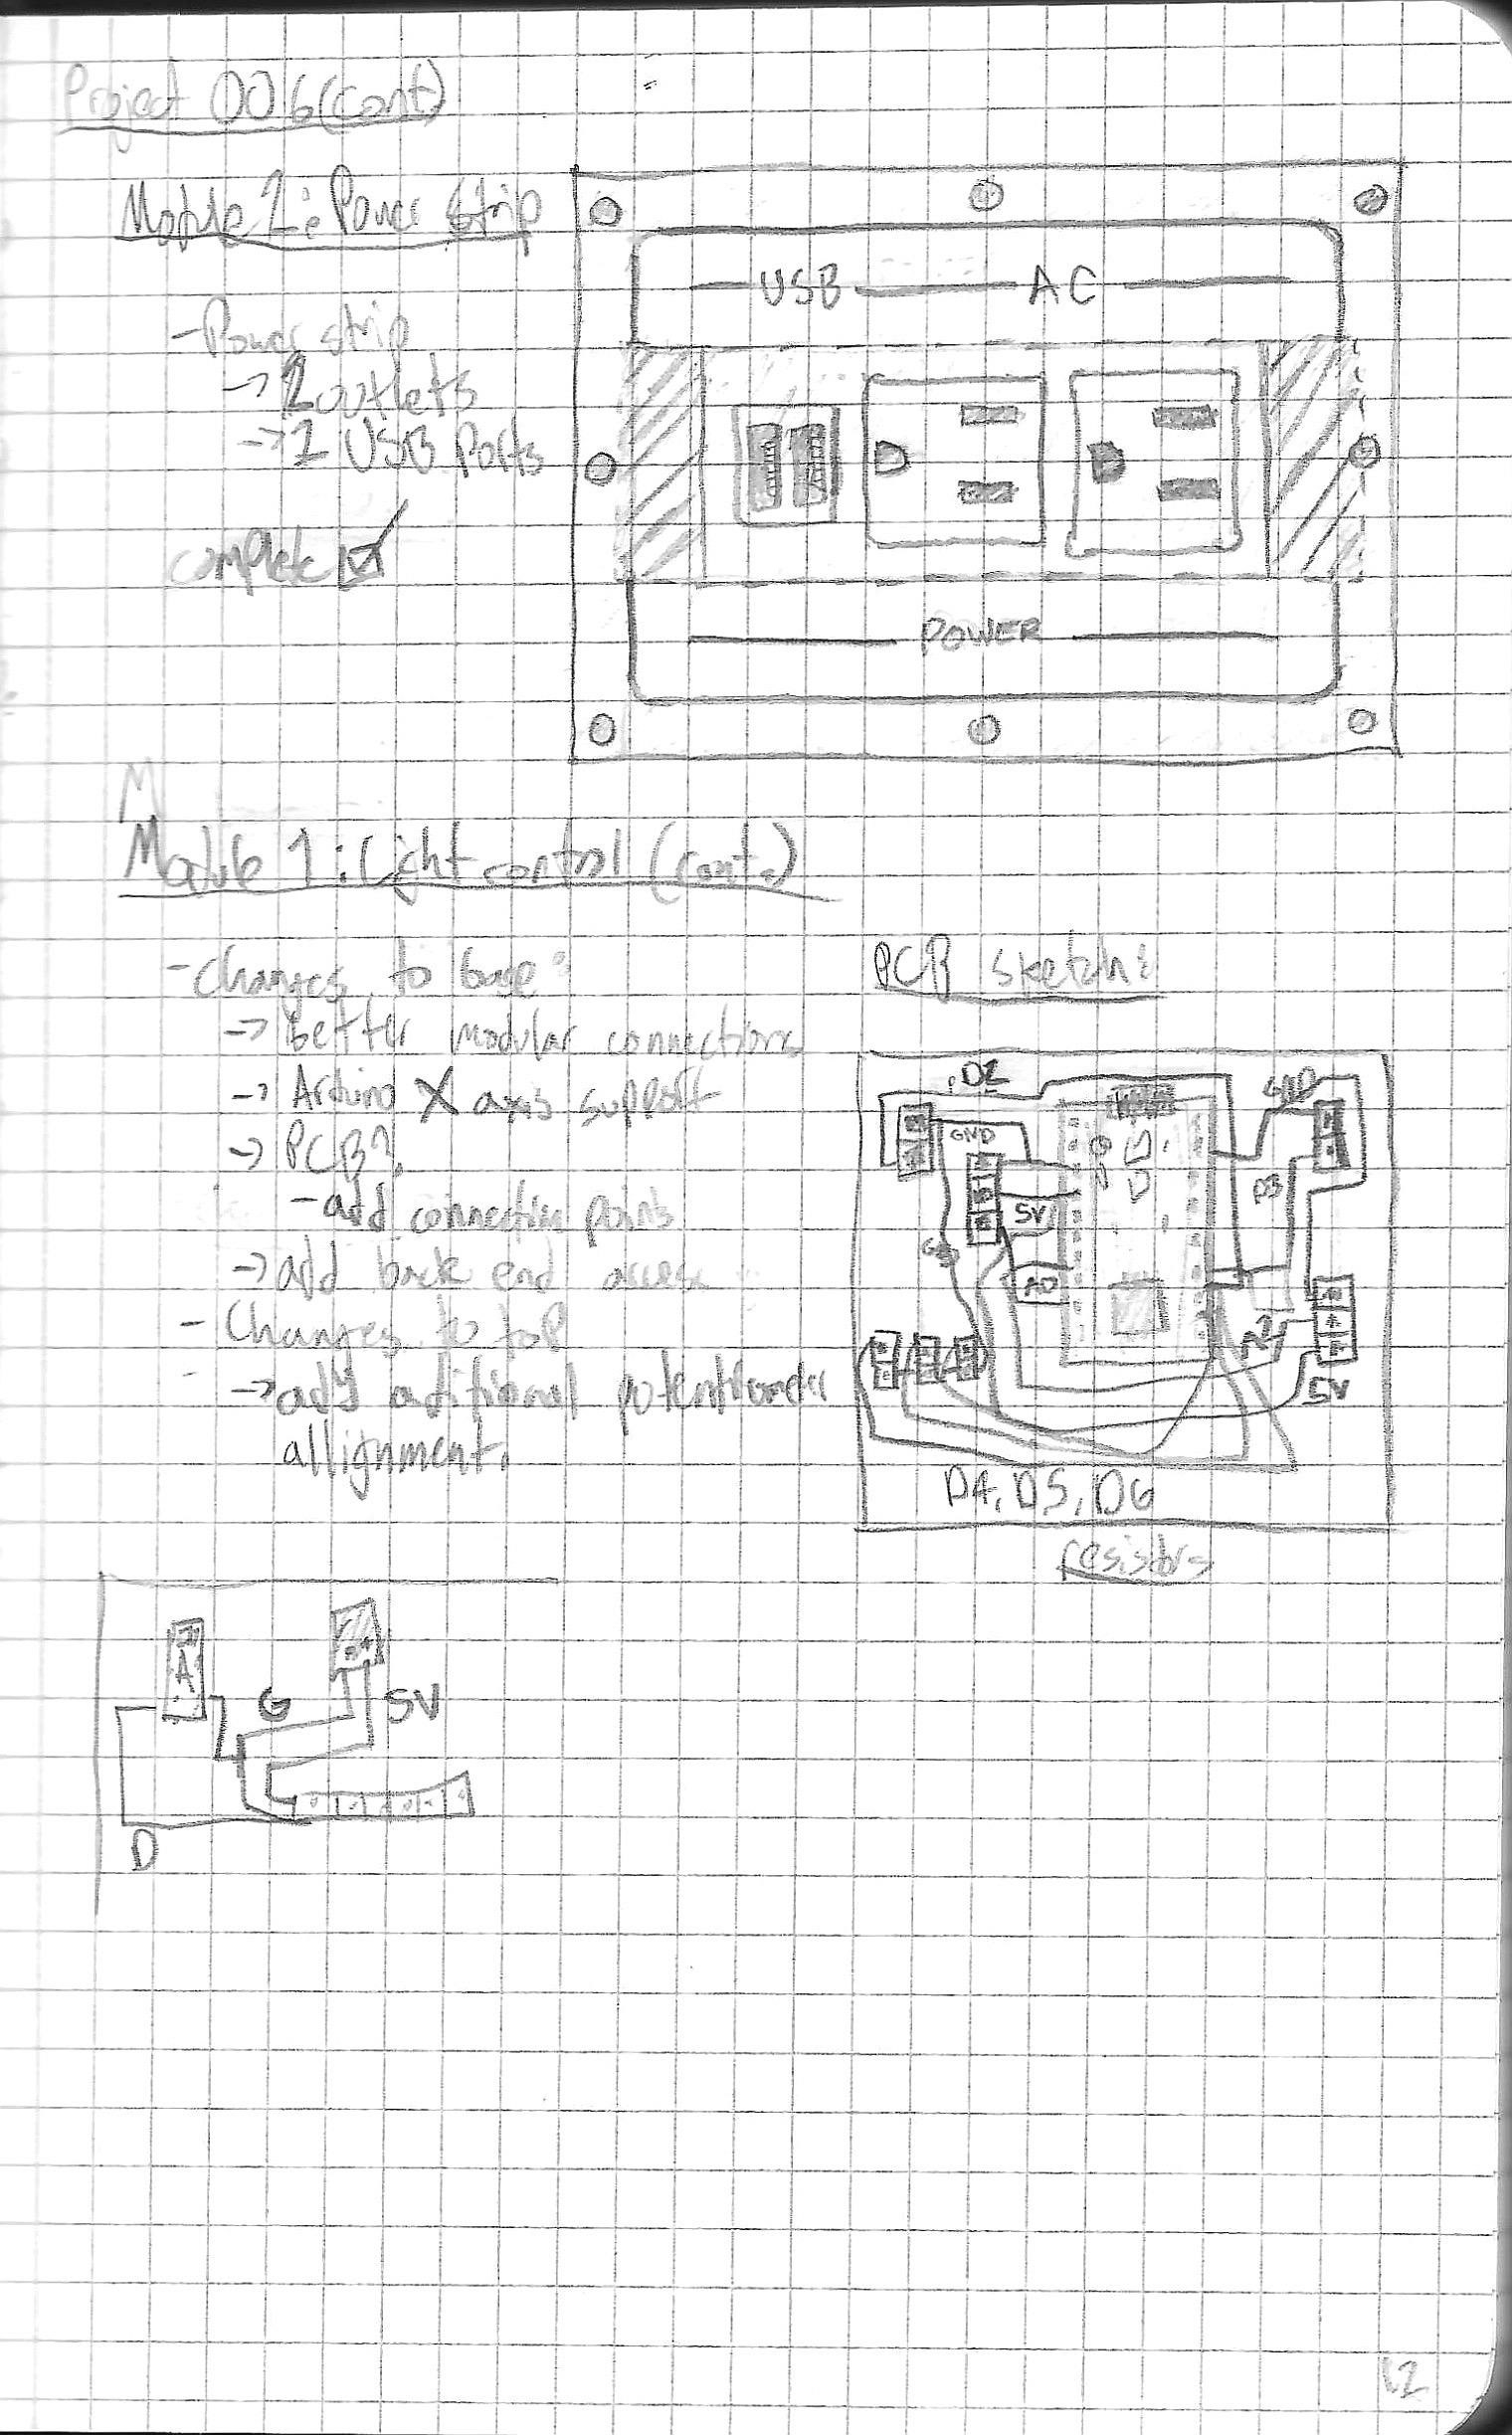 Project 006 (cont)
Module 2: Power strip
- Power strip
→ 2 outlets
→ 2 USB Ports
complete
USB AC
POWER
M
Module 1: Light control (cont.)
- Changes to base:
→ better modular connections
→ Arduino X axis support
→ PCB?
- add connection points
→ add back end access
- Changes to top
→ add additional potentiometer
allignment.
PCB sketch:
D2
GND
GND
5V
D3
GND
A0
5V
D4, D5, D6
resistors
A
G
5V
D
12